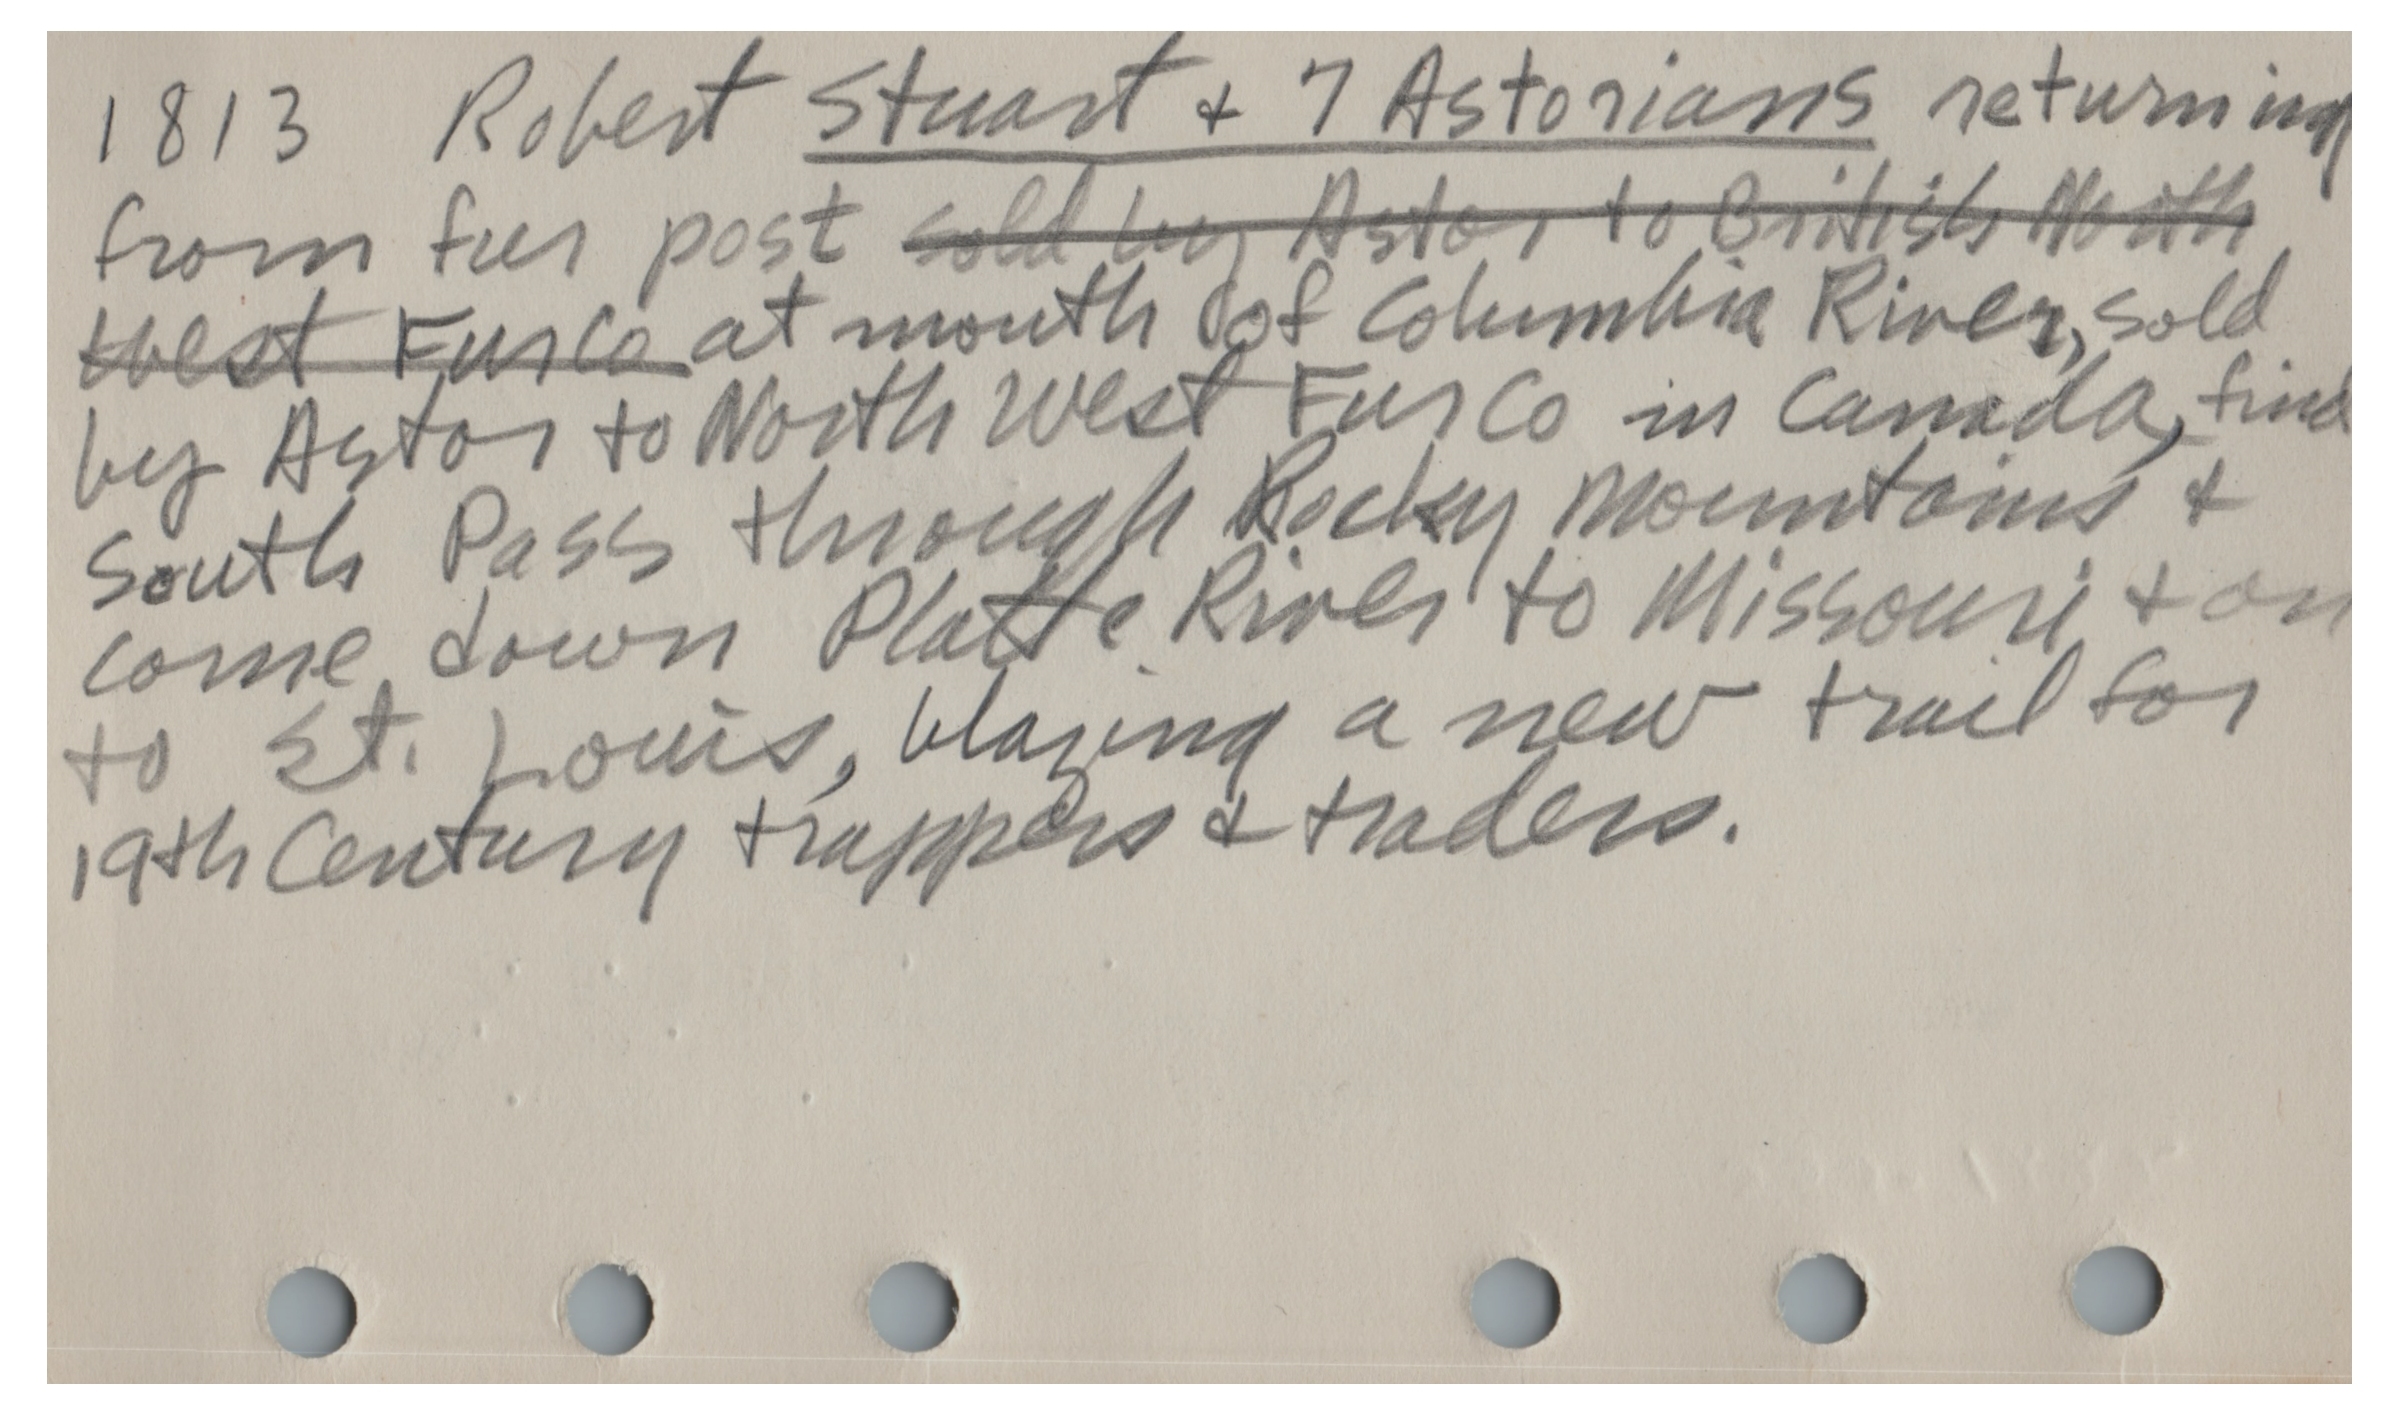 1813 Robert Stuart & 7 Astorians returning
from fur post sold by Astor to British North
West Fur Co at mouth of Columbia River, sold
by Astor to North West Fur Co in Canada, find
South Pass through Rocky Mountains &
come down Platte River to Missouri & on
to St. Louis, blazing a new trail for
19th Century trappers & traders.